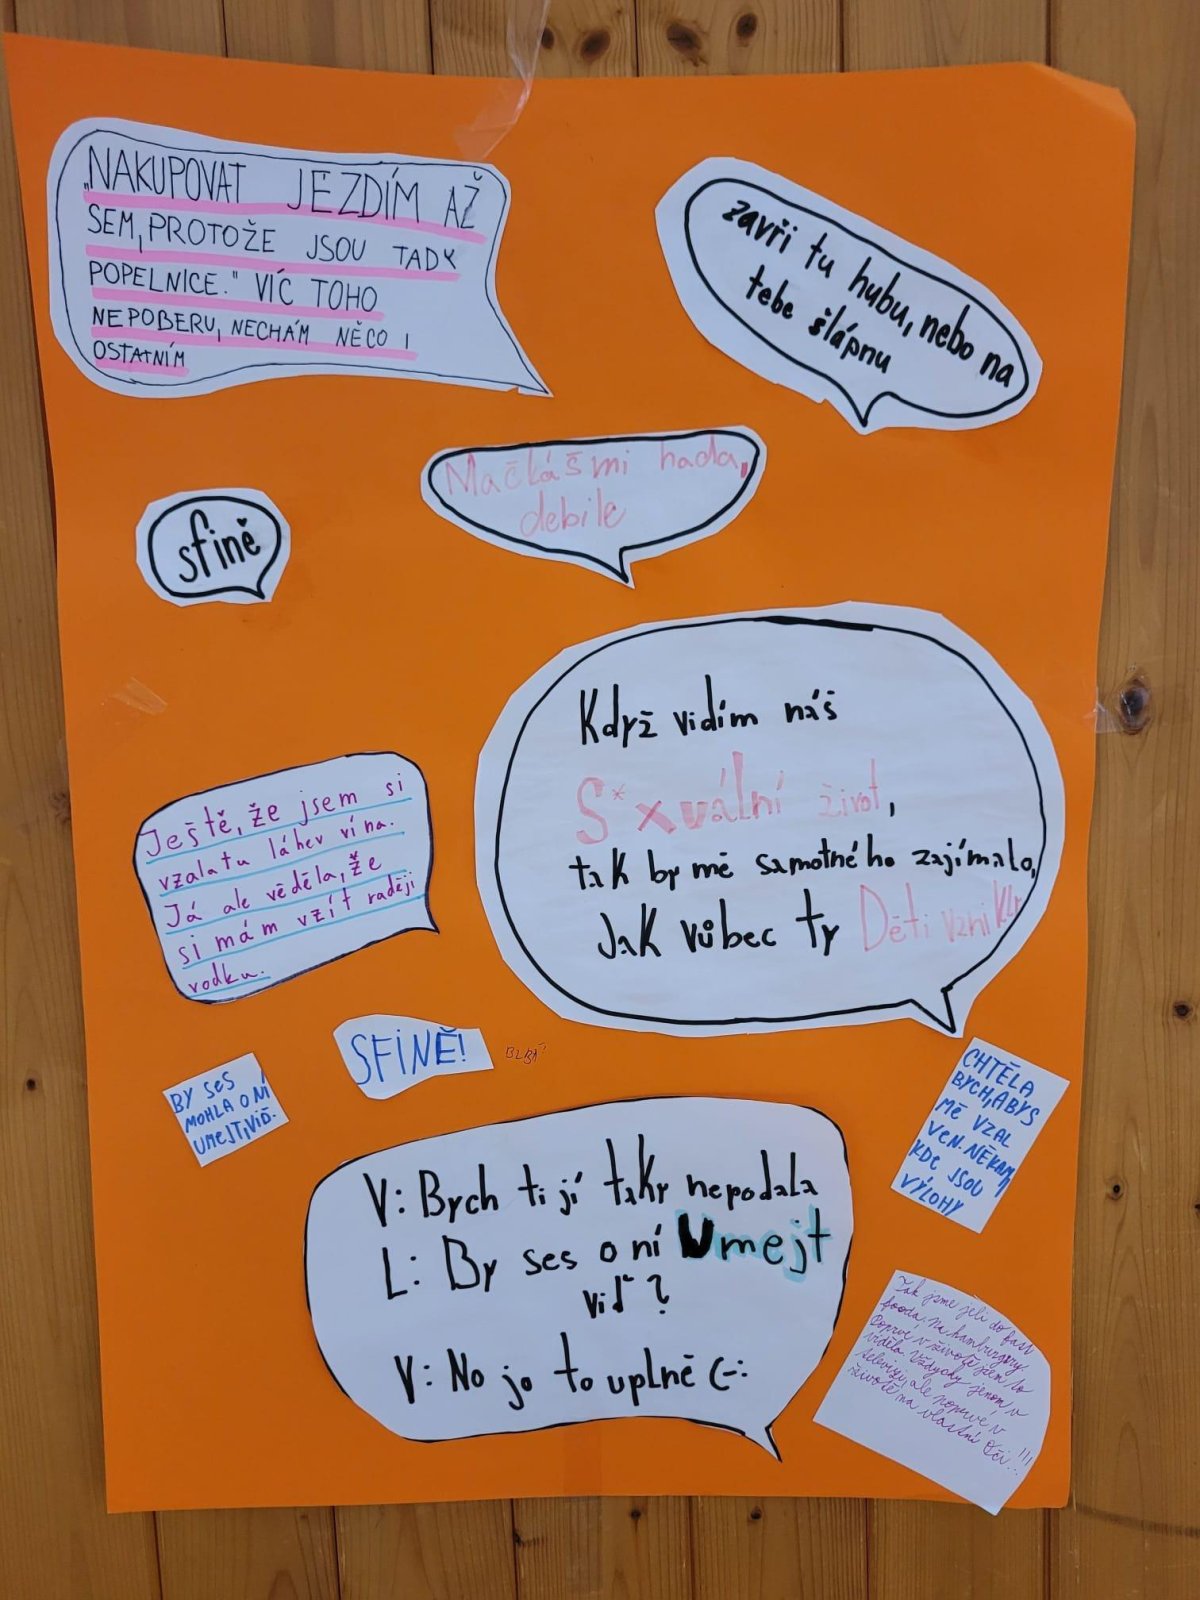 „NAKUPOVAT JEZDÍM AŽ
SEM, PROTOŽE JSOU TADY
POPELNICE." VÍC TOHO
NEPOBERU, NECHÁM NĚCO I
OSTATNÍM
zavři tu hubu, nebo na
tebe šlápnu
Mačkáš mi hada,
debile
sfině
Když vidím náš
S*xuální život,
tak by mě samotného zajímalo,
Jak vůbec ty Děti vznikly
Ještě, že jsem si
vzala tu láhev vína.
Já ale věděla, že
si mám vzít raději
vodku.
SFINĚ!
BY SES
MOHLA O NÍ
UMEJT, VIĎ.
CHTĚLA
BYCH, ABYS
MĚ VZAL
VEN. NĚKAM
KDE JSOU
VÝLOHY
V: Bych ti jí taky nepodala
L: By ses o ní Umejt
viď?
V: No jo to uplně (-:
Tak jsme jeli do fast
fooda, na hamburgery.
Poprvé v životě jsem to
viděla vždycky jenom v
televizi, ale poprvé v
životě na vlastní oči...!!!